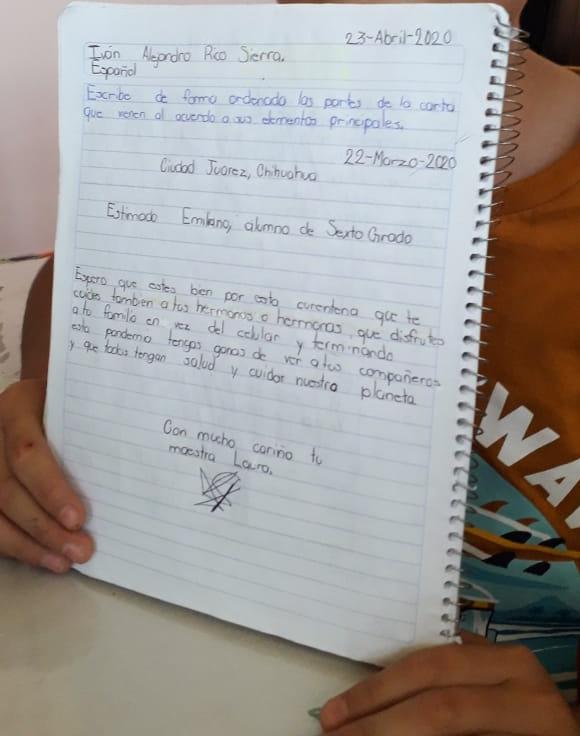 23-Abril-2020
Iván Alejandro Rico Sierra.
Español
Escribe de forma ordenada las partes de la carta
que vienen al acuerdo a sus elementos principales.
22-Marzo-2020
Ciudad Juarez, Chihuahua
Estimado Emiliano, alumno de Sexto Grado
Espero que estes bien por esta curentena que te
cuides tambien a tus hermanos o hermanas, que disfrutes
a tu familia en vez del celular y terminando
esta pandemia tengas ganas de ver a tus compañeros
y que todos tengan salud y cuidar nuestro planeta
Con mucho cariño tu
maestra Laura.
WA